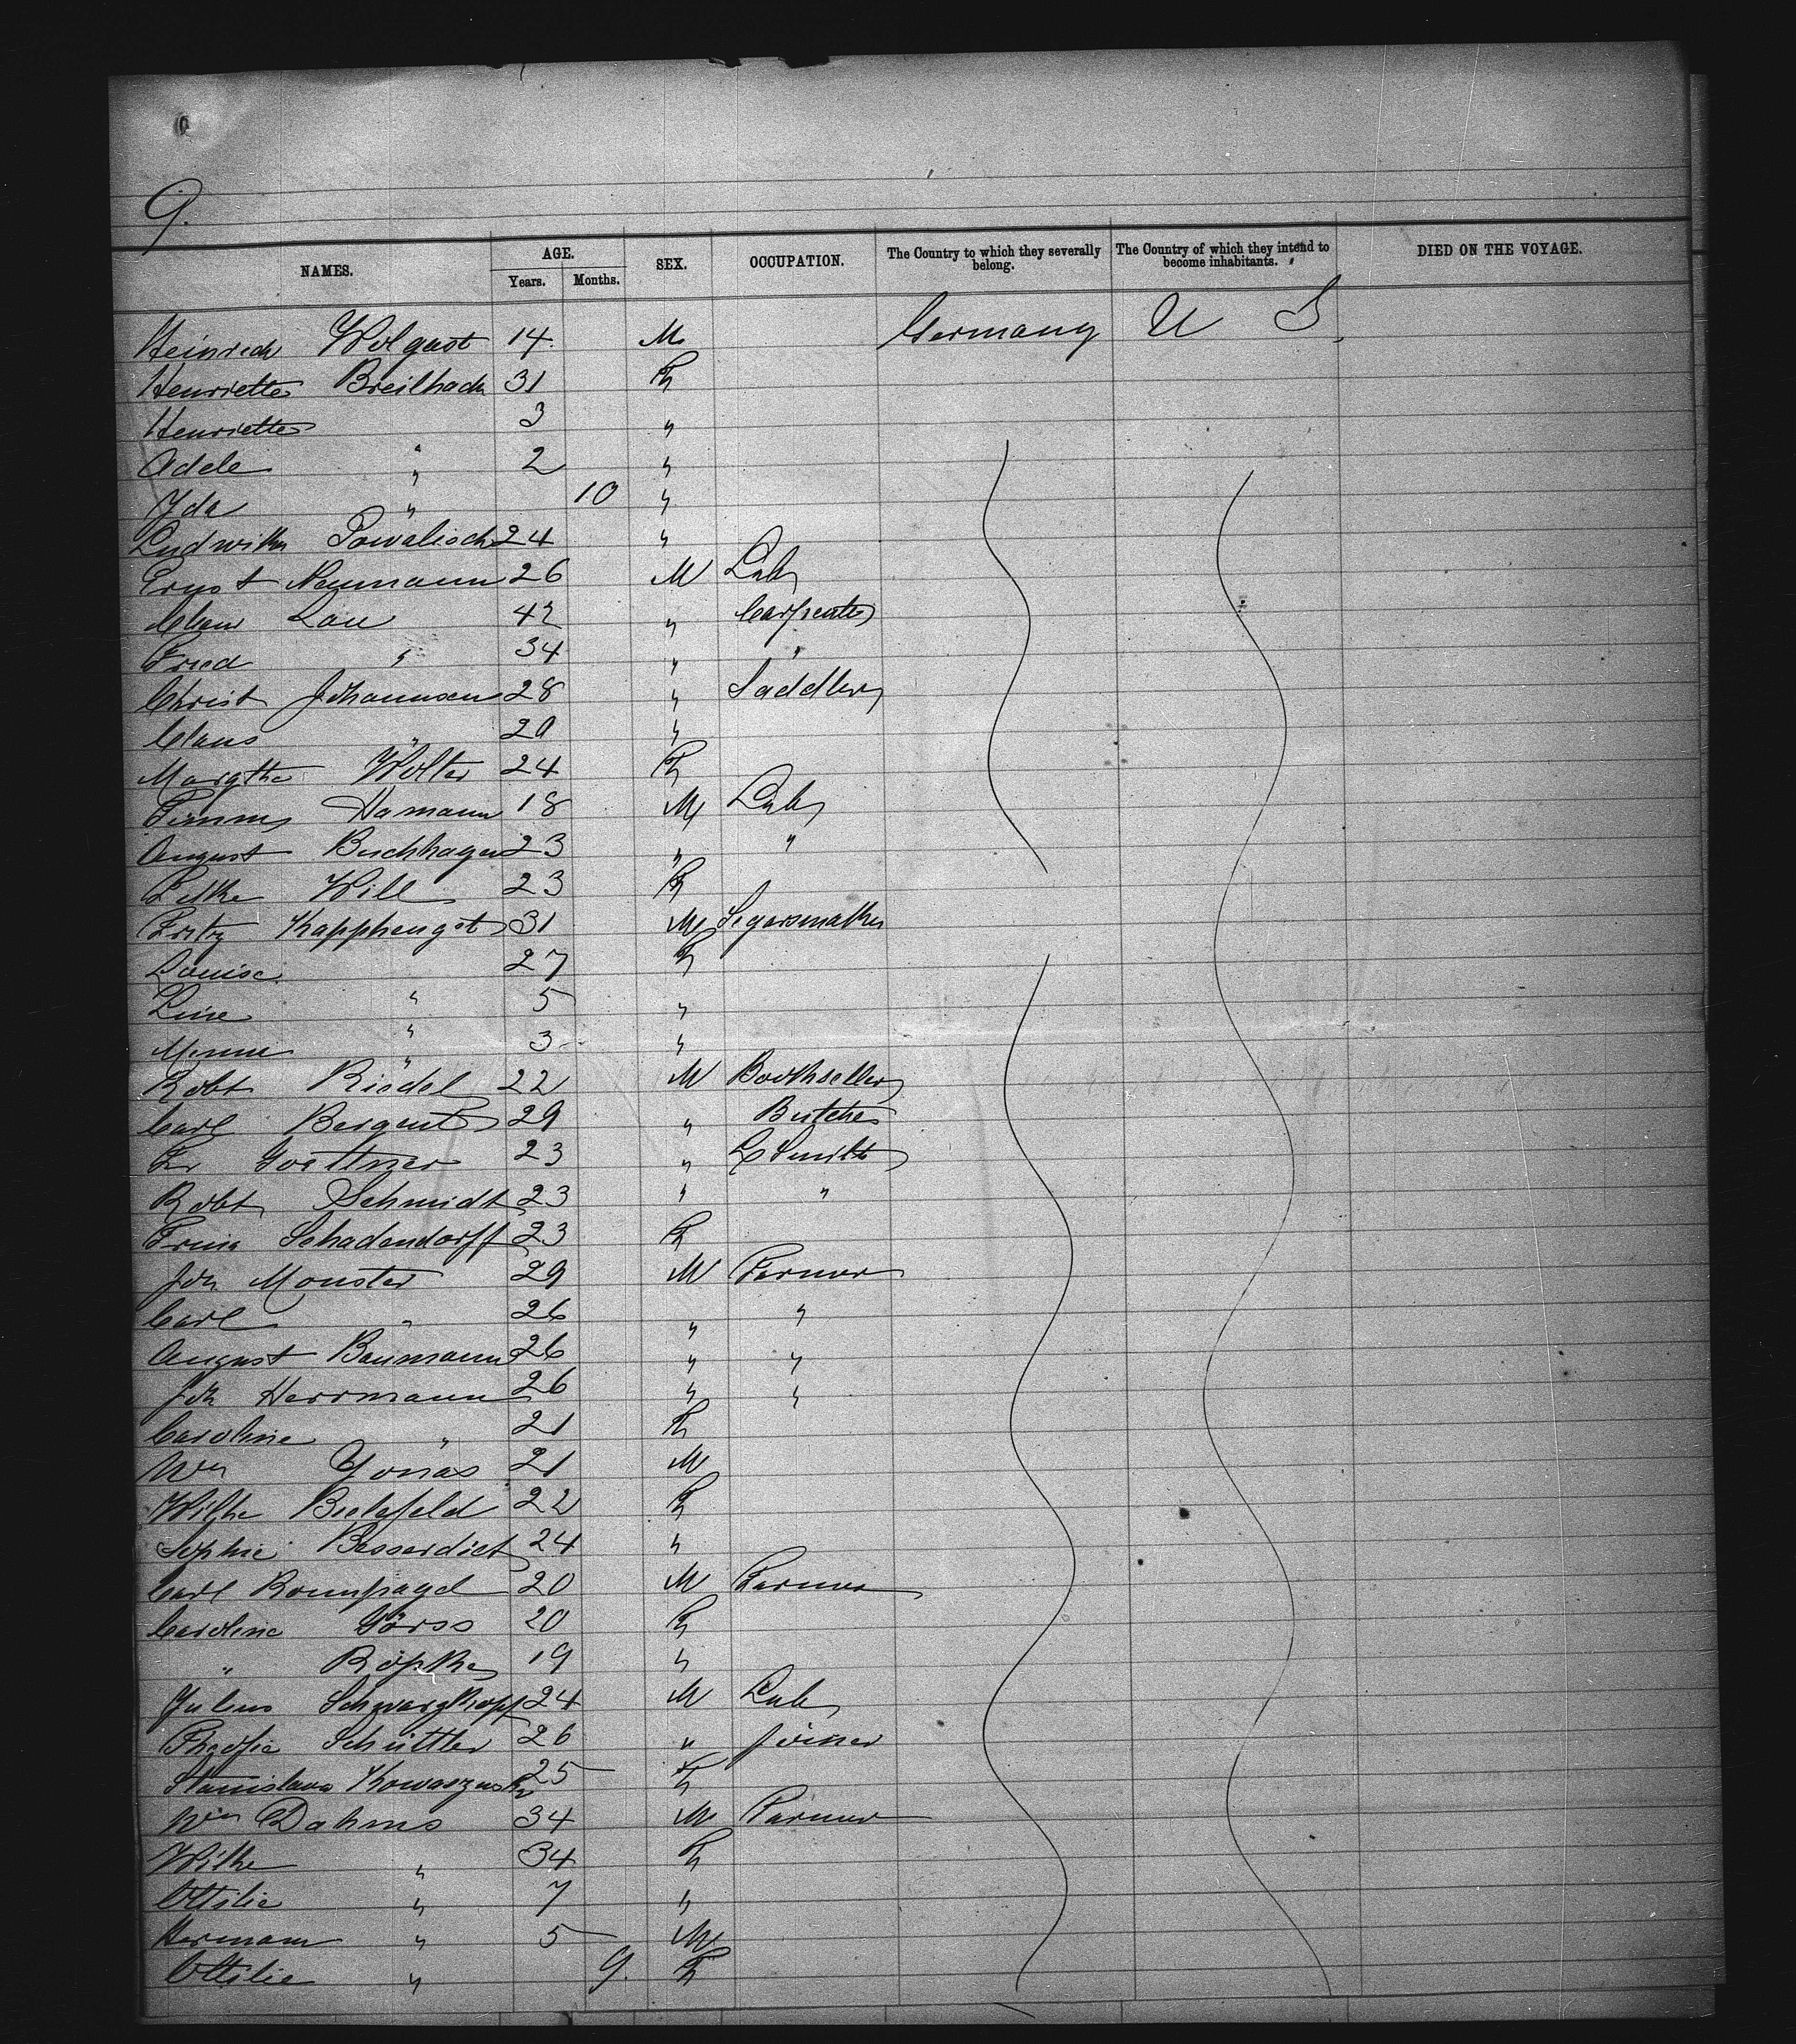 9.
NAMES. AGE. Years. Months. SEX. OCCUPATION. The Country to which they severally belong. The Country of which they intend to become inhabitants. DIED ON THE VOYAGE.
Heinrich Wolgast 14 M Germany U S
Henriette Breilhach 31 F
Henriette " 3 "
Adele " 2 "
Ida " 10 "
Ludwika 24 "
Ernst Neumann 26 M Lab
Claus Lau 42 " Carpenter
Fried " 34 " "
Christ Johannsen 28 " Saddler
Claus " 20 "
Margthe Wolter 24 F
Timm Hamann 18 M Lab
August Buchhagen 23 " "
Will 23 F
Fritz Kapphengst 31 M Segarsmaker
Louise " 27 F
Line " 5 "
Minna " 3 "
Robt Riedel 22 M Bookseller
Carl Bergent 29 " Butcher
Fr Goettner 23 " L Smith
Robt Schmidt 23 " "
Schadendorff 23 F
Joh Monster 29 M Farmer
Carl " 26 " "
August Baumann 26 " "
Joh Herrmann 26 " "
Caroline " 21 F
Wm Jonas 21 M
Wilhe Bielefeld 22 F
Sophie Besserdict 24 "
Carl Rompagel 20 M Farmer
Caroline Görss 20 F
" Röpke 19 "
Julius Schwarzkopf 24 M Lab
Schüttler 26 " Joiner
Stanislawa 25 F
Wm Dahms 34 M Farmer
Wilhe " 34 F
Ottilie " 7 "
Hermann " 5 M
Ottilie " 9. F